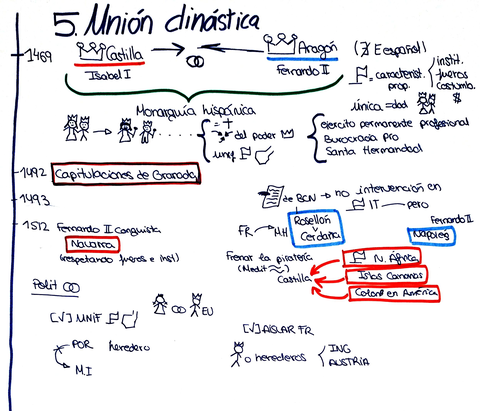 5. Unión dinástica
1469
Castilla
Aragón
(∄ E español)
Isabel I
Fernando II
= caracterist. prop.
instit.
fueros
costumb.
única = dad
$
Monarquía hispánica
= +
del poder
unif
ejercito permanente profesional
Burocracia Pro
Santa Hermandad
1492
Capitulaciones de Granada
1493
de BCN → no intervención en
IT — pero
1512
Fernando II Conquista
Navarra
(respetando fueros e inst)
FR → MH
Rosellón
y
Cerdaña
Fernando II
Nápoles
Frenar la piratería
(Medit
Castilla
N. África
Islas Canarias
Coloniz en América
Polít
EU
[V] UNIF
[V] AISLAR FR
POR heredero
M.I
herederos
ING
AUSTRIA